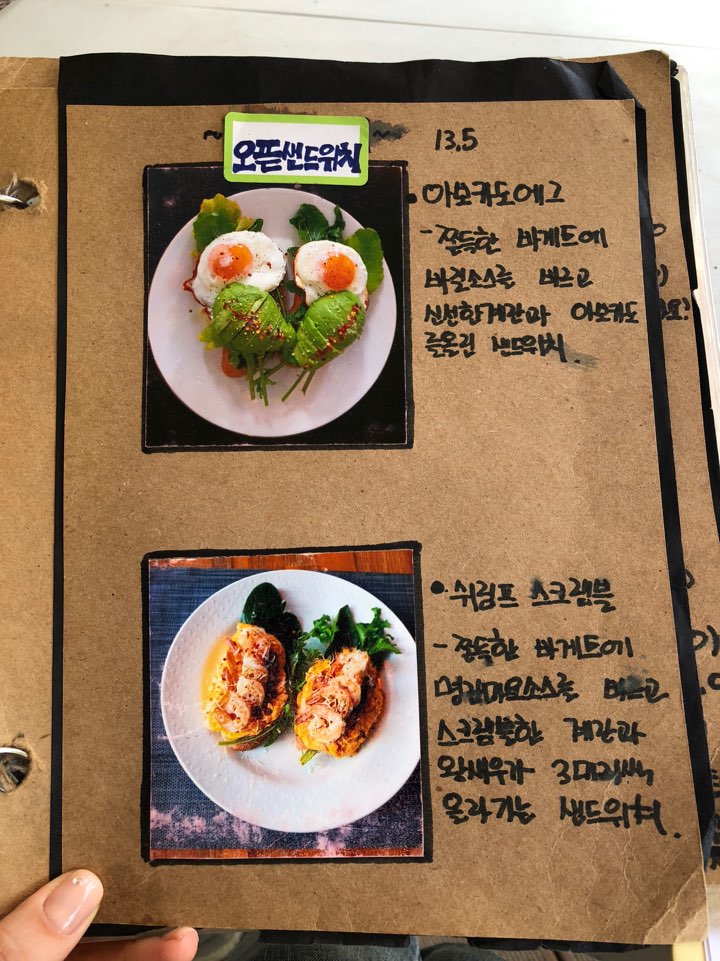 오픈샌드위치
13.5
아보카도에그
- 쫀득한 바게트에
바질소스를 바르고
신선한계란과 아보카도
를올린 샌드위치.
쉬림프 스크램블
- 쫀득한 바게트에
명란마요소스를 바르고
스크램블한 계란과
왕새우가 3마리씩
올라가는 샌드위치.